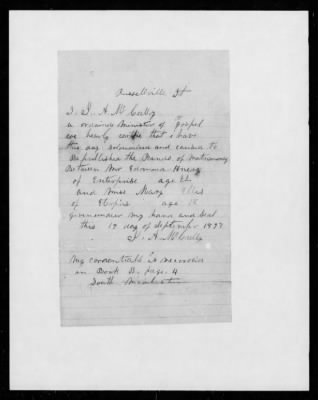 Russellville, 
I. J. A. McCully
a ordained Minister of Gospel
do hearby certify that i have
this day solemnised and caused to
Be published the Banns of matrimony
Between Mr Edmond
of Enterprise age
and Miss Mary
of Empire age 18
given under my hand and seal
this 12 day of September 1877
J. A. McCully
my credentials is recorded
on Book B. Page 4
South